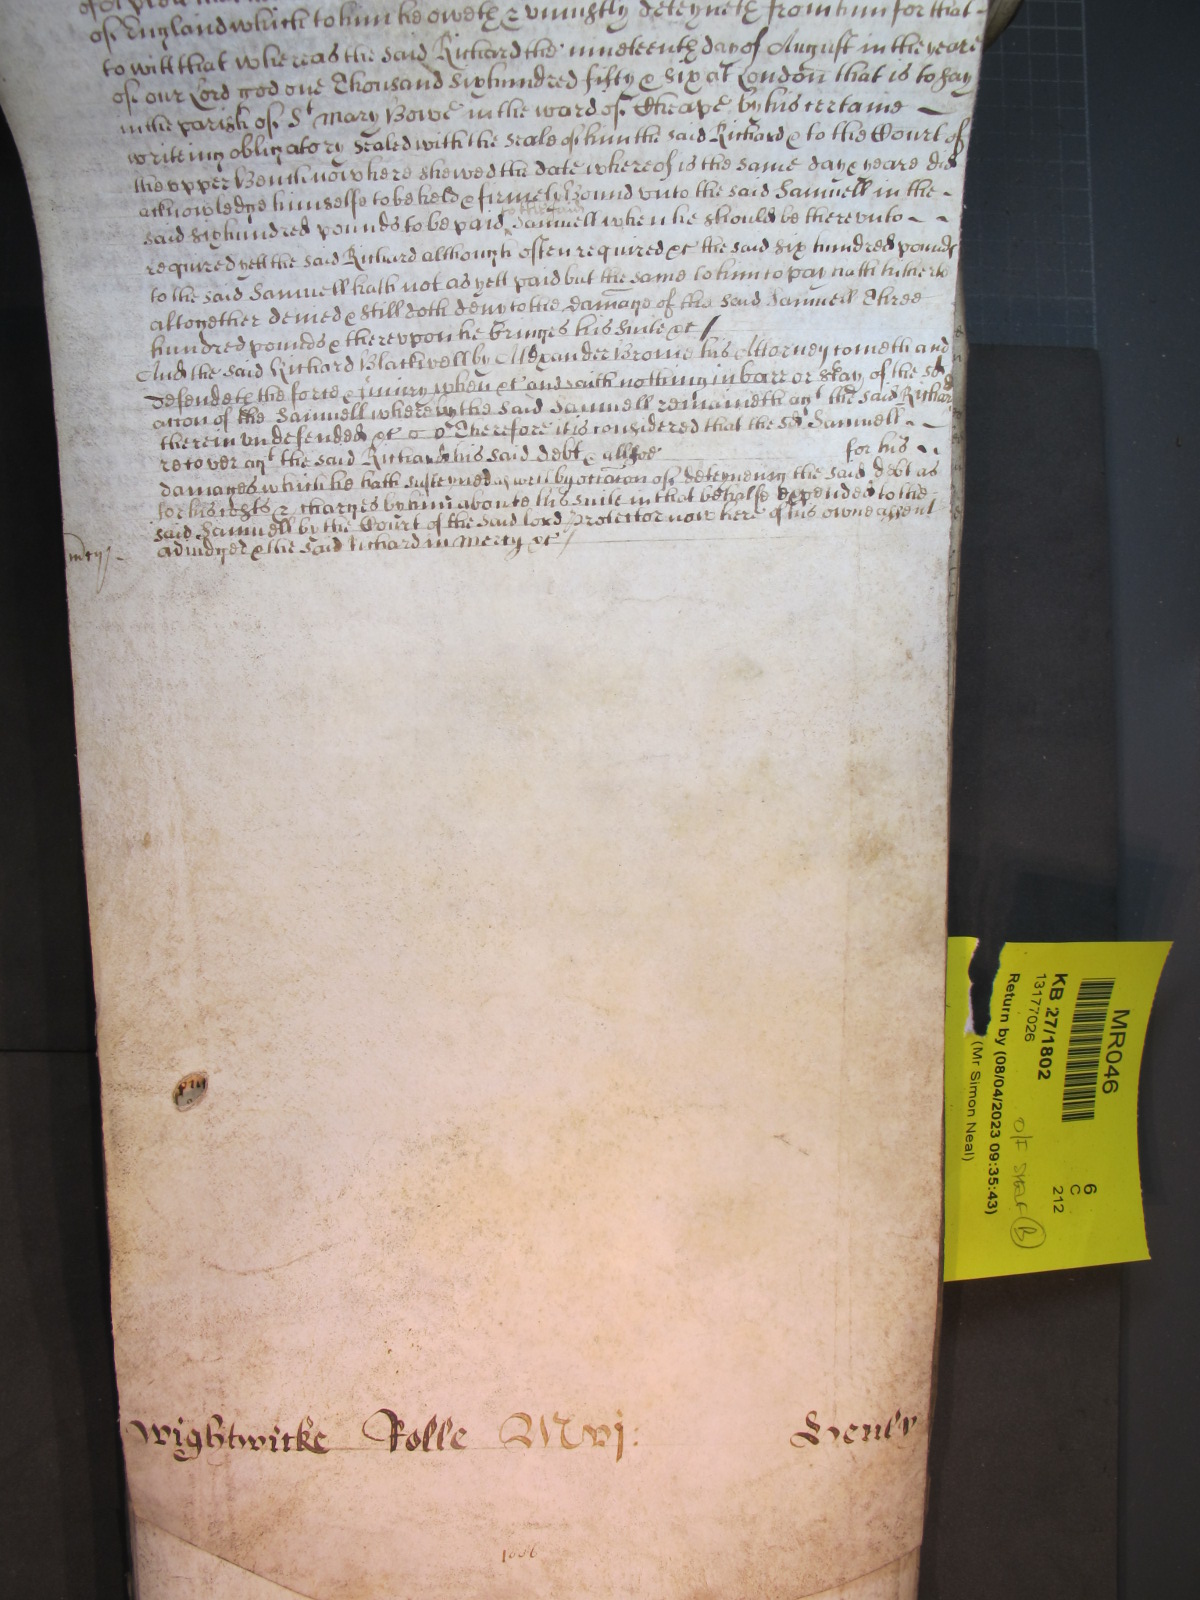 of England which to him he oweth & uniustly deteyneth from him for that
to witt that whereas the said Richard the nineteenth day of August in the yeare
of our Lord god one Thousand six hundred fifty & six at London that is to say
in the parish of St Mary Bowe in the ward of Cheape by his certaine
writeing obligatory sealed with the seale of him the said Richard & to the Court of
the upper Bench now here shewed the date whereof is the same day & yeare did
acknowledge himselfe to be held & firmely Bound unto the said Samuell in the
said six hundred pounds to be paid to the said Samuell when he should be thereunto
required yett the said Richard although often required &c the said six hundred pounds
to the said Samuell hath not as yett paid but the same to him to pay hath hitherto
altogether denied & still doth deny to the damage of the said Samuell Three
hundred pounds & thereupon he bringes his suite &c
And the said Richard Blackwell by Alexander Brome his Attorney cometh and
defendeth the force & iniury when &c and saith nothing in barr or stay of the sd
accon of the Samuell whereby the said Samuell remaineth agt the said Richard
therein undefended &c Therefore it is considered that the sd Samuell
recover agt the said Richard his said debt & allsoe for his
damages which he hath susteyned as well by occasion of deteyneing the said debt as
for his costs & charges by him about his suite in that behalfe expended to the
said Samuell by the Court of the said lord protector now here of his owne assent
adiudged & the said Richard in mercy &c
mcy
Wightwicke Rolle Mvi: Henly
1006
MR046
KB 27/1802
13177026
Return by (08/04/2023 09:35:43)
(Mr Simon Neal)
6
C
212
O/F SHELF B